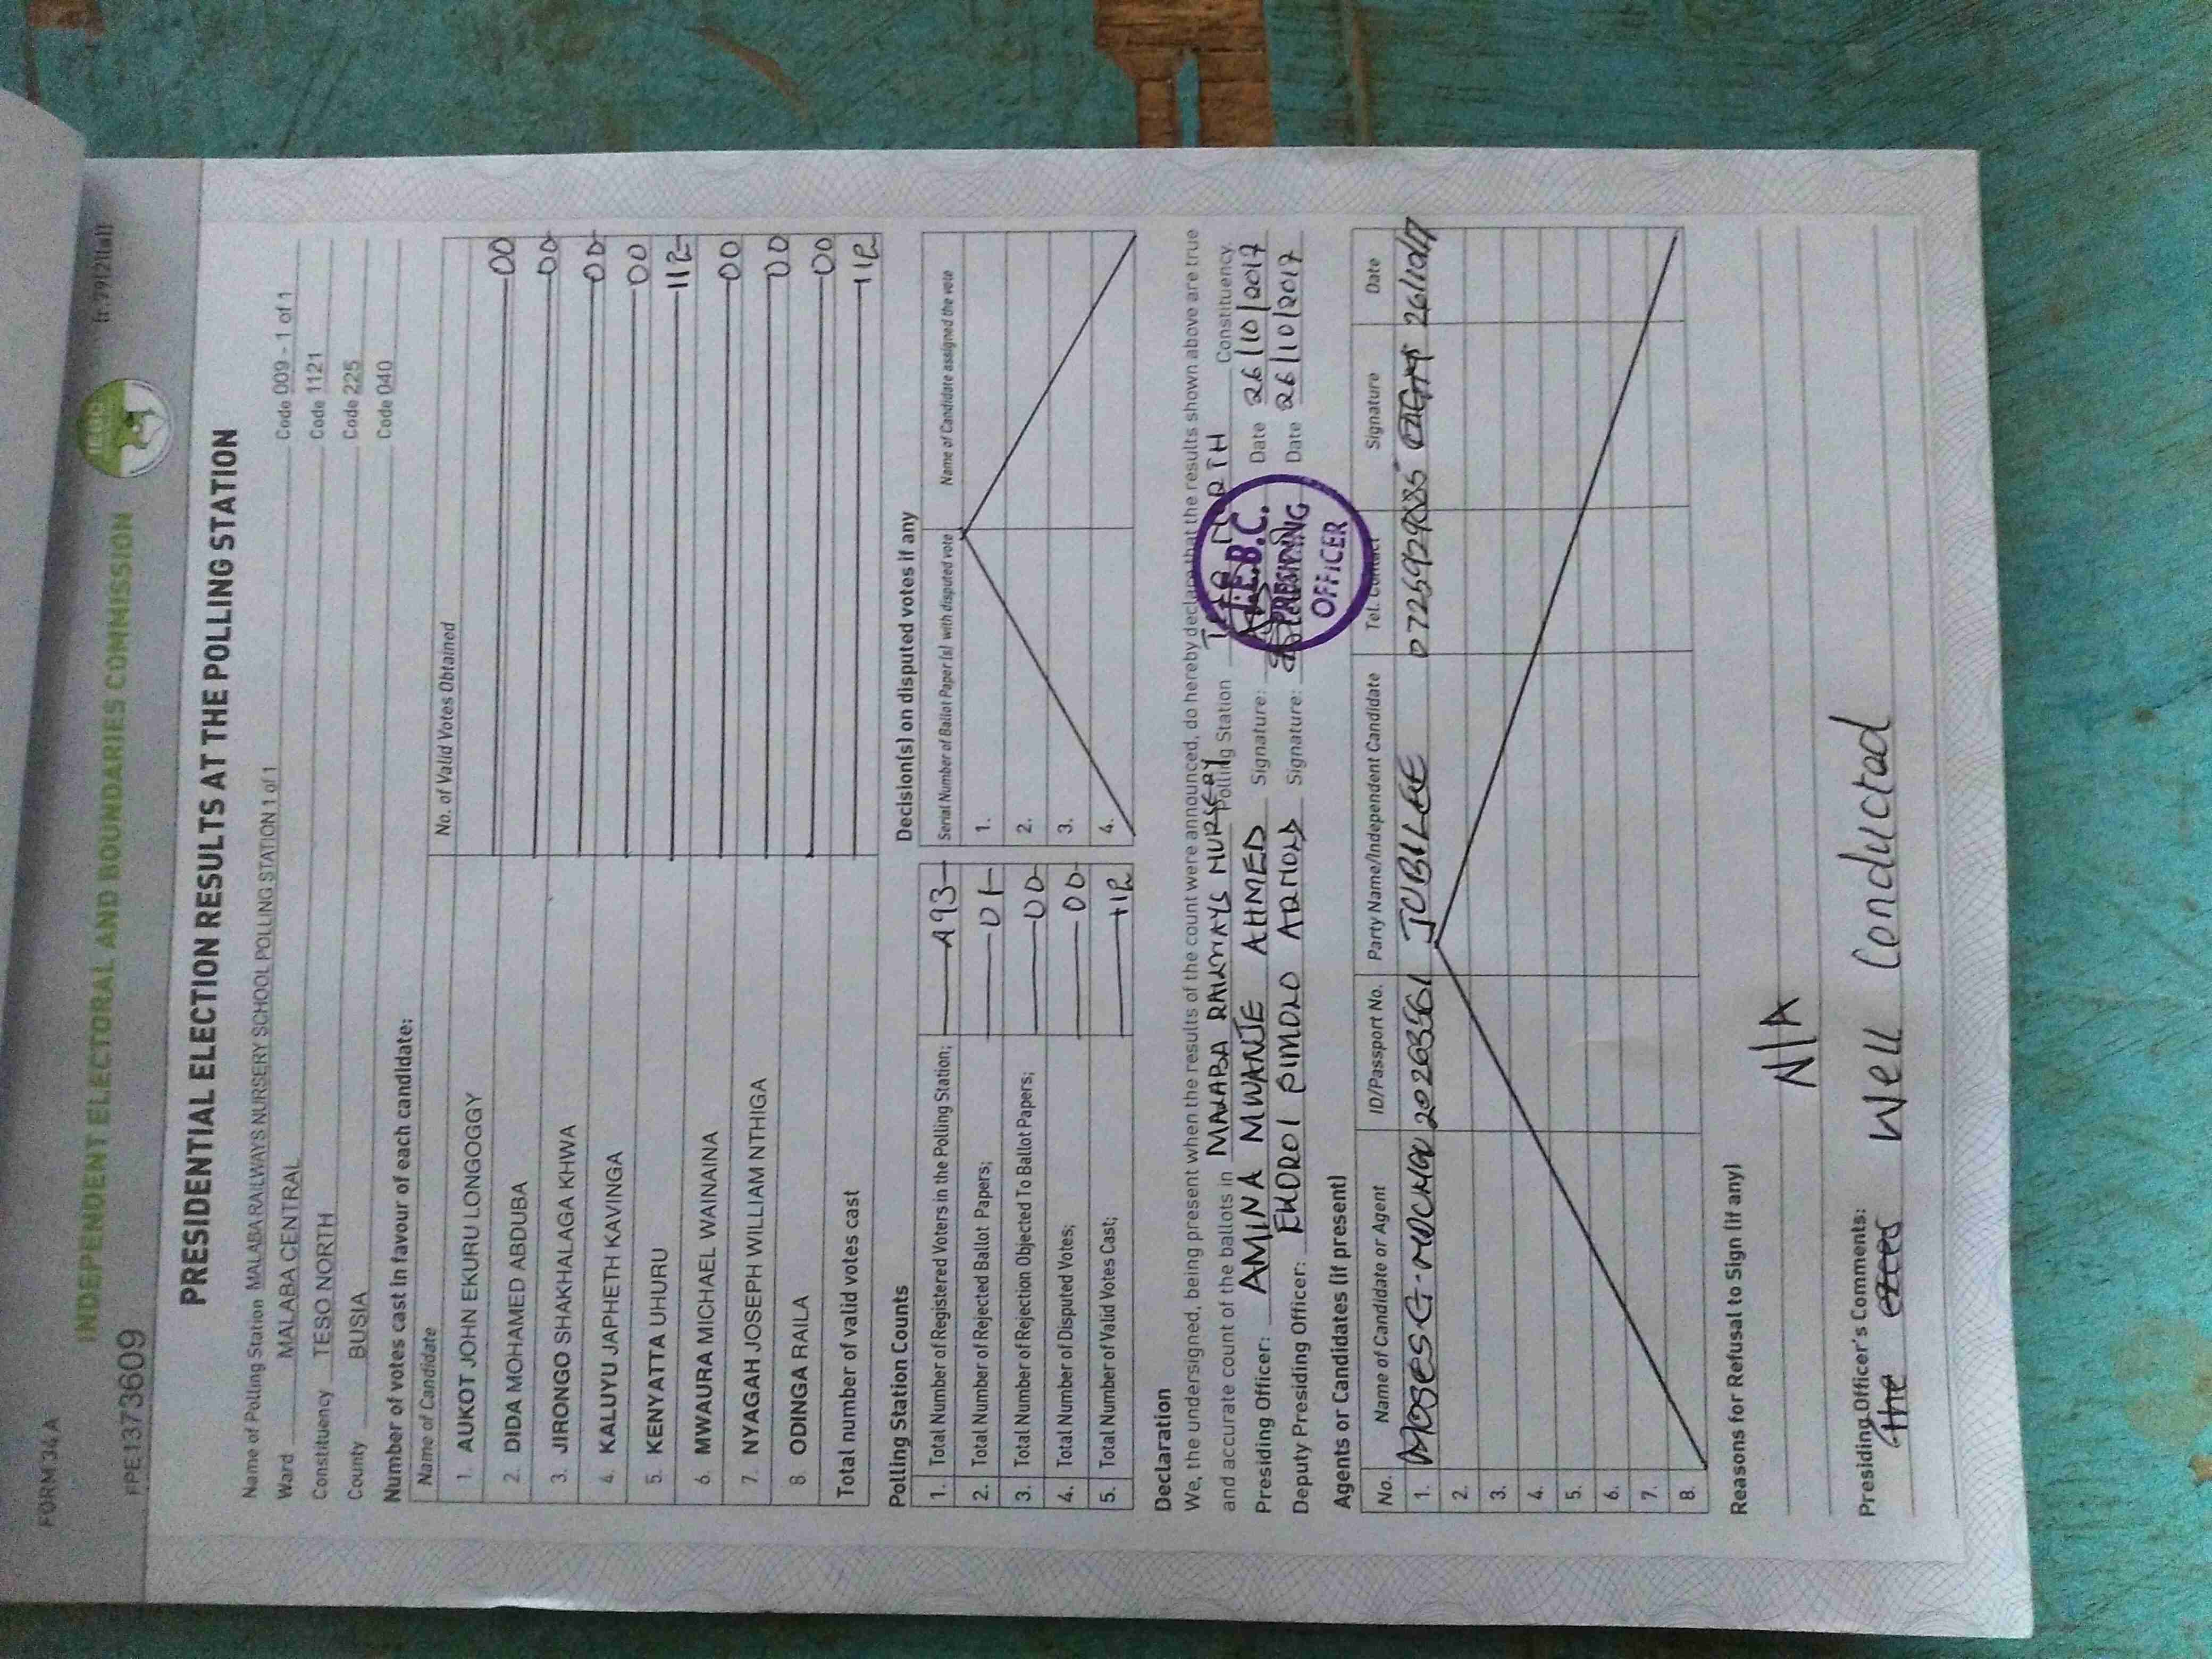 FORM 34 A
INDEPENDENT ELECTORAL AND BOUNDARIES COMMISSION
IEBC
(r.79(2)(a))
PRESIDENTIAL ELECTION RESULTS AT THE POLLING STATION
Name of Polling Station MALABA RAILWAYS NURSERY SCHOOL POLLING STATION 1 of 1 Code 009 - 1 of 1
Ward MALABA CENTRAL Code 1121
Constituency TESO NORTH Code 225
County BUSIA Code 040
Number of votes cast in favour of each candidate:
Name of Candidate No. of Valid Votes Obtained
1. AUKOT JOHN EKURU LONGOGGY 00
2. DIDA MOHAMED ABDUBA 00
3. JIRONGO SHAKHALAGA KHWA 00
4. KALUYU JAPHETH KAVINGA 00
5. KENYATTA UHURU 112
6. MWAURA MICHAEL WAINAINA 00
7. NYAGAH JOSEPH WILLIAM NTHIGA 00
8. ODINGA RAILA 00
Total number of valid votes cast 112
Polling Station Counts
1. Total Number of Registered Voters in the Polling Station; 493
2. Total Number of Rejected Ballot Papers; 01
3. Total Number of Rejection Objected To Ballot Papers; 00
4. Total Number of Disputed Votes; 00
5. Total Number of Valid Votes Cast; 112
Decision(s) on disputed votes if any
Serial Number of Ballot Paper (s) with disputed vote Name of Candidate assigned the vote
1.
2.
3.
4.
Declaration
We, the undersigned, being present when the results of the count were announced, do hereby declare that the results shown above are true
and accurate count of the ballots in MALABA RAILWAYS NURSERY Polling Station TESO NORTH Constituency.
Presiding Officer: AMINA MWANJE AHMED Signature: Date 26/10/2017
Deputy Presiding Officer: Signature: Date 26/10/2017
I.E.B.C.
PRESIDING
OFFICER
Agents or Candidates (if present)
No. Name of Candidate or Agent ID/Passport No. Party Name/Independent Candidate Tel. Contact Signature Date
1. MOSES G. JUBILEE 26/10/17
2.
3.
4.
5.
6.
7.
8.
Reasons for Refusal to Sign (if any)
N/A
Presiding Officer's Comments:
the Well Conducted